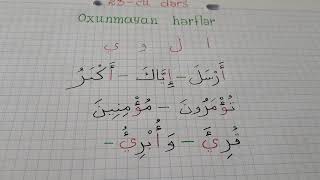 23-cü dərs
Oxunmayan hərflər
ا ل و ي
أَرْسَلَ – إِيَّاكَ – أَكْبَرُ
تُؤْمَرُونَ – مُؤْمِنِينَ
قُرِئَ – وَأُبْرِئُ –